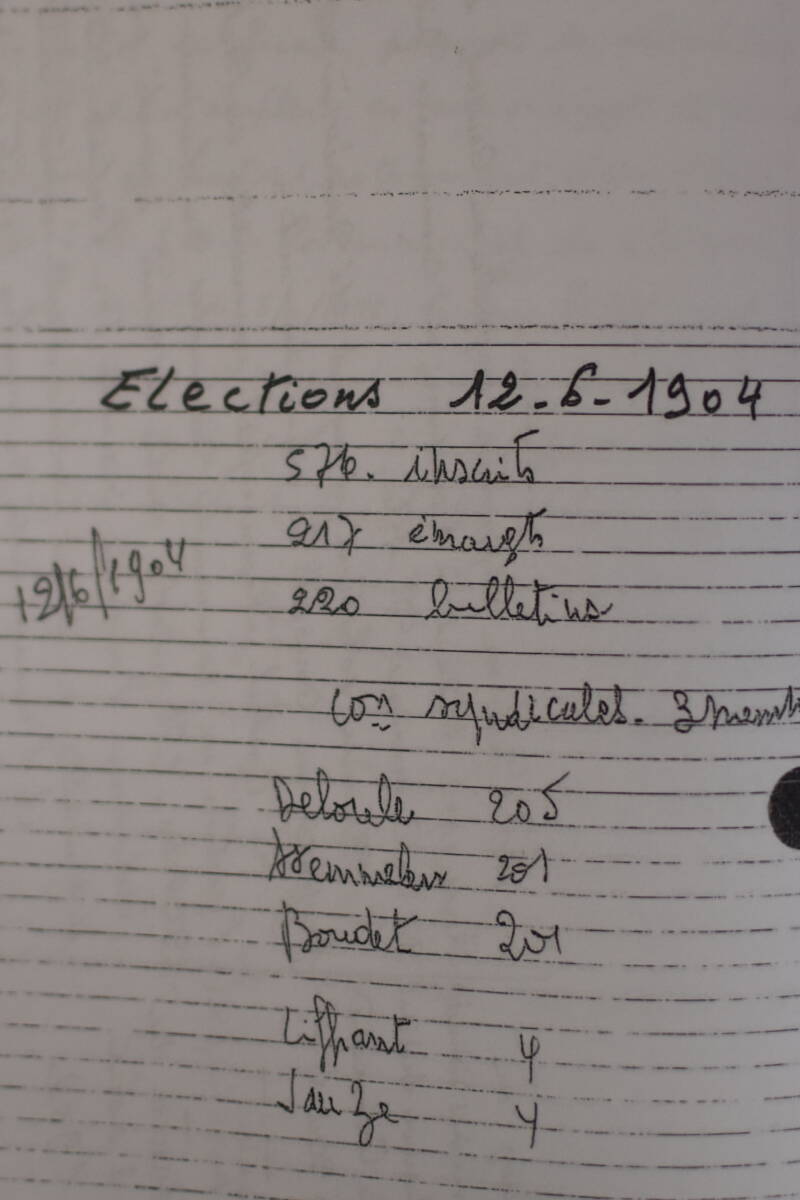 Elections 12-6-1904
576. inscrits
217 émargts
12/6/1904
220 bulletins
Con syndicales. 3 memb
Deloule 205
201
Boudet 201
Liffrast 4
Sauze 4